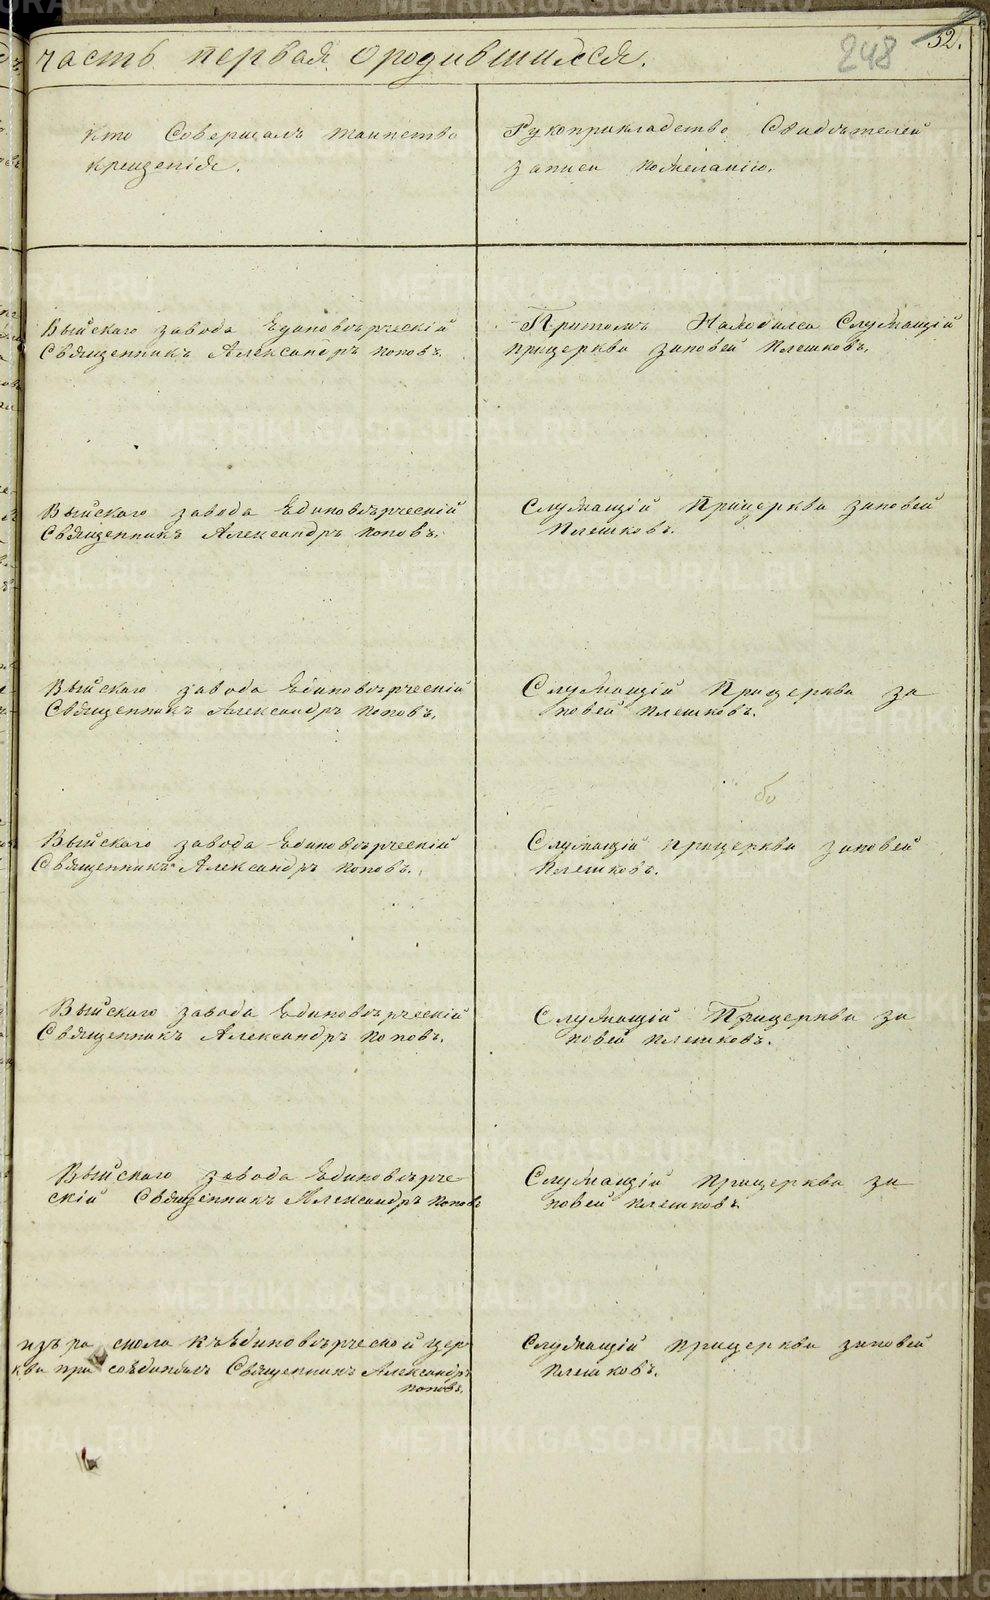 часть первая ородившихся.
248
52.
Кто Совершалъ таинство
крещенія.
Рукоприкладство Свидѣтелей
записи пожеланію.
Выйскаго завода Единовѣрческій
Священникъ Александръ поповъ.
Притомъ Находился Служащій
прицеркви зиновей Плешковъ.
Выйскаго завода Единовѣрческій
Священникъ Александръ поповъ.
Служащій Прицеркви зиновей
Плешковъ.
Выйскаго завода Единовѣрческій
Священникъ Александръ поповъ.
Служащій Прицеркви зи
новей плешковъ.
Выйскаго завода Единовѣрческій
Священникъ Александръ поповъ.
Служащій прицеркви зиновей
Плешковъ.
Выйскаго завода Единовѣрческій
Священникъ Александръ поповъ.
Служащій Прицеркви зи
новей плешковъ.
Выйскаго завода Единовѣрче
скій Священникъ Александръ поповъ
Служащій прицеркви зи
новей плешковъ.
изъ ра скола къЕдиновѣрческой цер
кви при соединилъ Священникъ Александръ
поповъ.
Служащій прицеркви зиновей
плешковъ.
METRIKI.GASO-URAL.RU